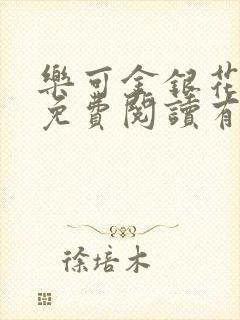 樂可金銀花
免費閱讀有
徐培木